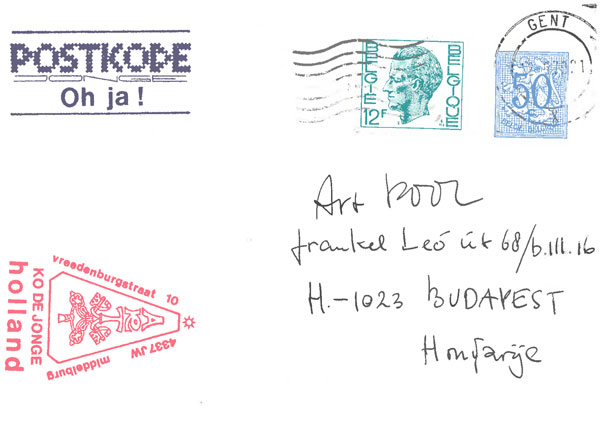 POSTKODE
Oh ja !
GENT
BELGIE
BELGIQUE
12F
50
c
Art POOL
frankel Leó út 68/b.III.16
H.-1023 BUDAPEST
Hongarije
vreedenburgstraat 10
4337 JW middelburg
KO DE JONGE
holland